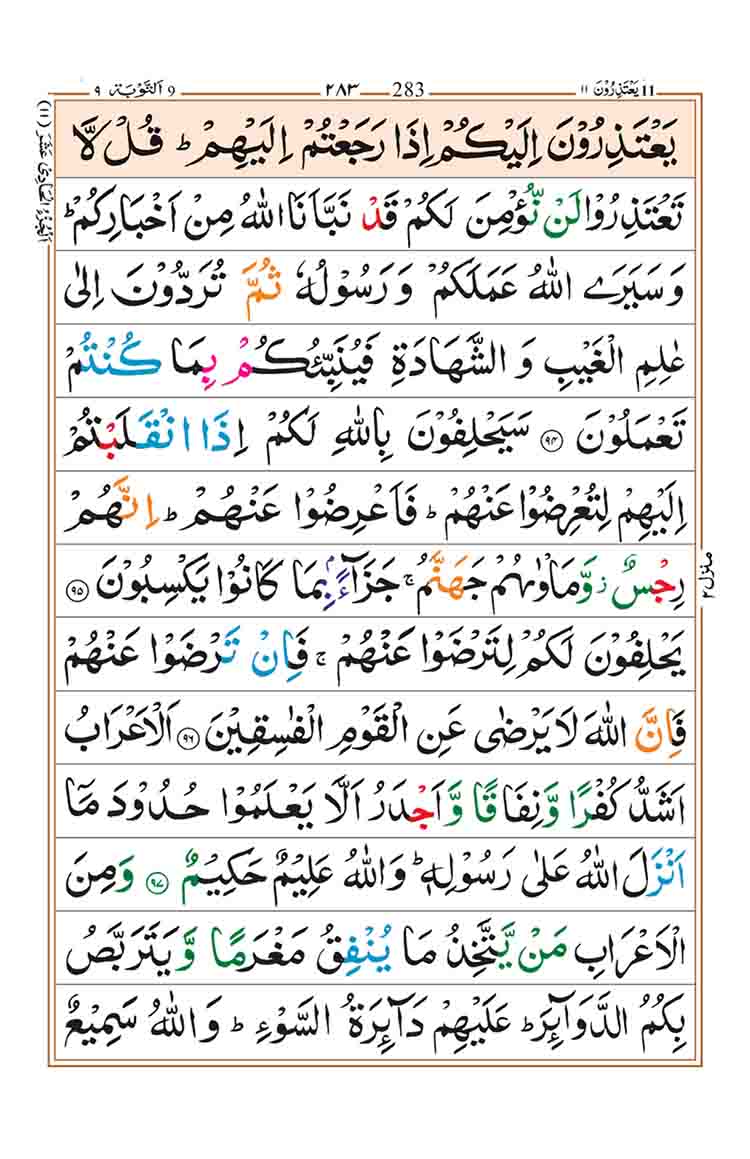 11 يَعْتَذِرُوْنَ ۱۱ 283 ۲۸۳ 9 اَلتَّوْبَة ۹
يَعْتَذِرُوْنَ اِلَيْكُمْ اِذَا رَجَعْتُمْ اِلَيْهِمْ ؕ قُلْ لَّا
تَعْتَذِرُوْا لَنْ نُّؤْمِنَ لَكُمْ قَدْ نَبَّاَنَا اللّٰهُ مِنْ اَخْبَارِكُمْ ؕ
وَ سَيَرَى اللّٰهُ عَمَلَكُمْ وَ رَسُوْلُهٗ ثُمَّ تُرَدُّوْنَ اِلٰى
عٰلِمِ الْغَيْبِ وَ الشَّهَادَةِ فَيُنَبِّئُكُمْ بِمَا كُنْتُمْ
تَعْمَلُوْنَ ۝۹۴ سَيَحْلِفُوْنَ بِاللّٰهِ لَكُمْ اِذَا انْقَلَبْتُمْ
اِلَيْهِمْ لِتُعْرِضُوْا عَنْهُمْ ؕ فَاَعْرِضُوْا عَنْهُمْ ؕ اِنَّهُمْ
رِجْسٌ ؗ وَّ مَاْوٰىهُمْ جَهَنَّمُ ۚ جَزَآءًۢ بِمَا كَانُوْا يَكْسِبُوْنَ ۝۹۵
يَحْلِفُوْنَ لَكُمْ لِتَرْضَوْا عَنْهُمْ ۚ فَاِنْ تَرْضَوْا عَنْهُمْ
فَاِنَّ اللّٰهَ لَا يَرْضٰى عَنِ الْقَوْمِ الْفٰسِقِيْنَ ۝۹۶ اَلْاَعْرَابُ
اَشَدُّ كُفْرًا وَّ نِفَاقًا وَّ اَجْدَرُ اَلَّا يَعْلَمُوْا حُدُوْدَ مَاۤ
اَنْزَلَ اللّٰهُ عَلٰى رَسُوْلِهٖ ؕ وَ اللّٰهُ عَلِيْمٌ حَكِيْمٌ ۝۹۷ وَ مِنَ
الْاَعْرَابِ مَنْ يَّتَّخِذُ مَا يُنْفِقُ مَغْرَمًا وَّ يَتَرَبَّصُ
بِكُمُ الدَّوَآئِرَ ؕ عَلَيْهِمْ دَآئِرَةُ السَّوْءِ ؕ وَ اللّٰهُ سَمِيْعٌ
اَلْجُزْءُ الْحَادِیْ عَشَرَ (۱۱)
منزل ۲